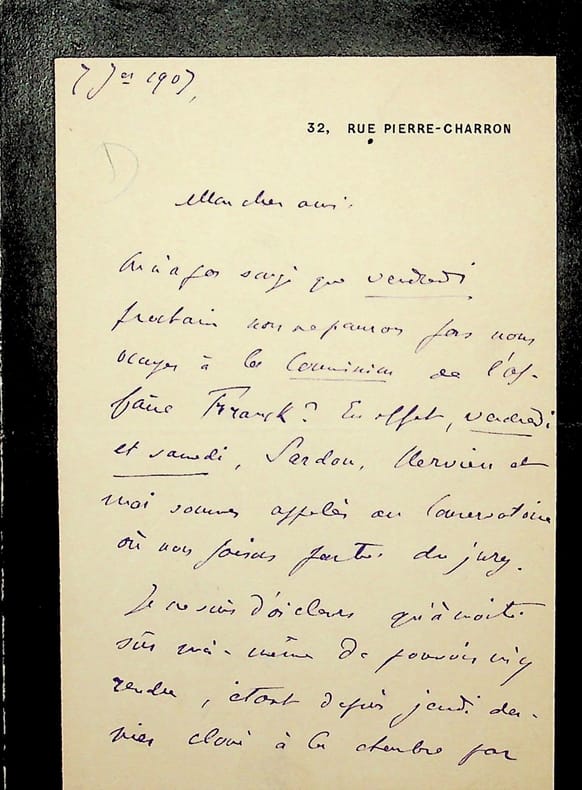 7 Jer 1907,
32, RUE PIERRE-CHARRON
D
Mon cher ami,
On n'a pas songé que vendredi
prochain nous ne pourrons pas nous
occuper à la Commission de l'af-
faire Franck? En effet, vendredi
et samedi, Sardou, Hervieu et
moi sommes appelés au Conservatoire
où nous faisons partie du jury.
Je ne suis d'ailleurs qu'à moitié
sûr moi-même de pouvoir m'y
rendre, étant depuis jeudi der-
nier cloué à la chambre par